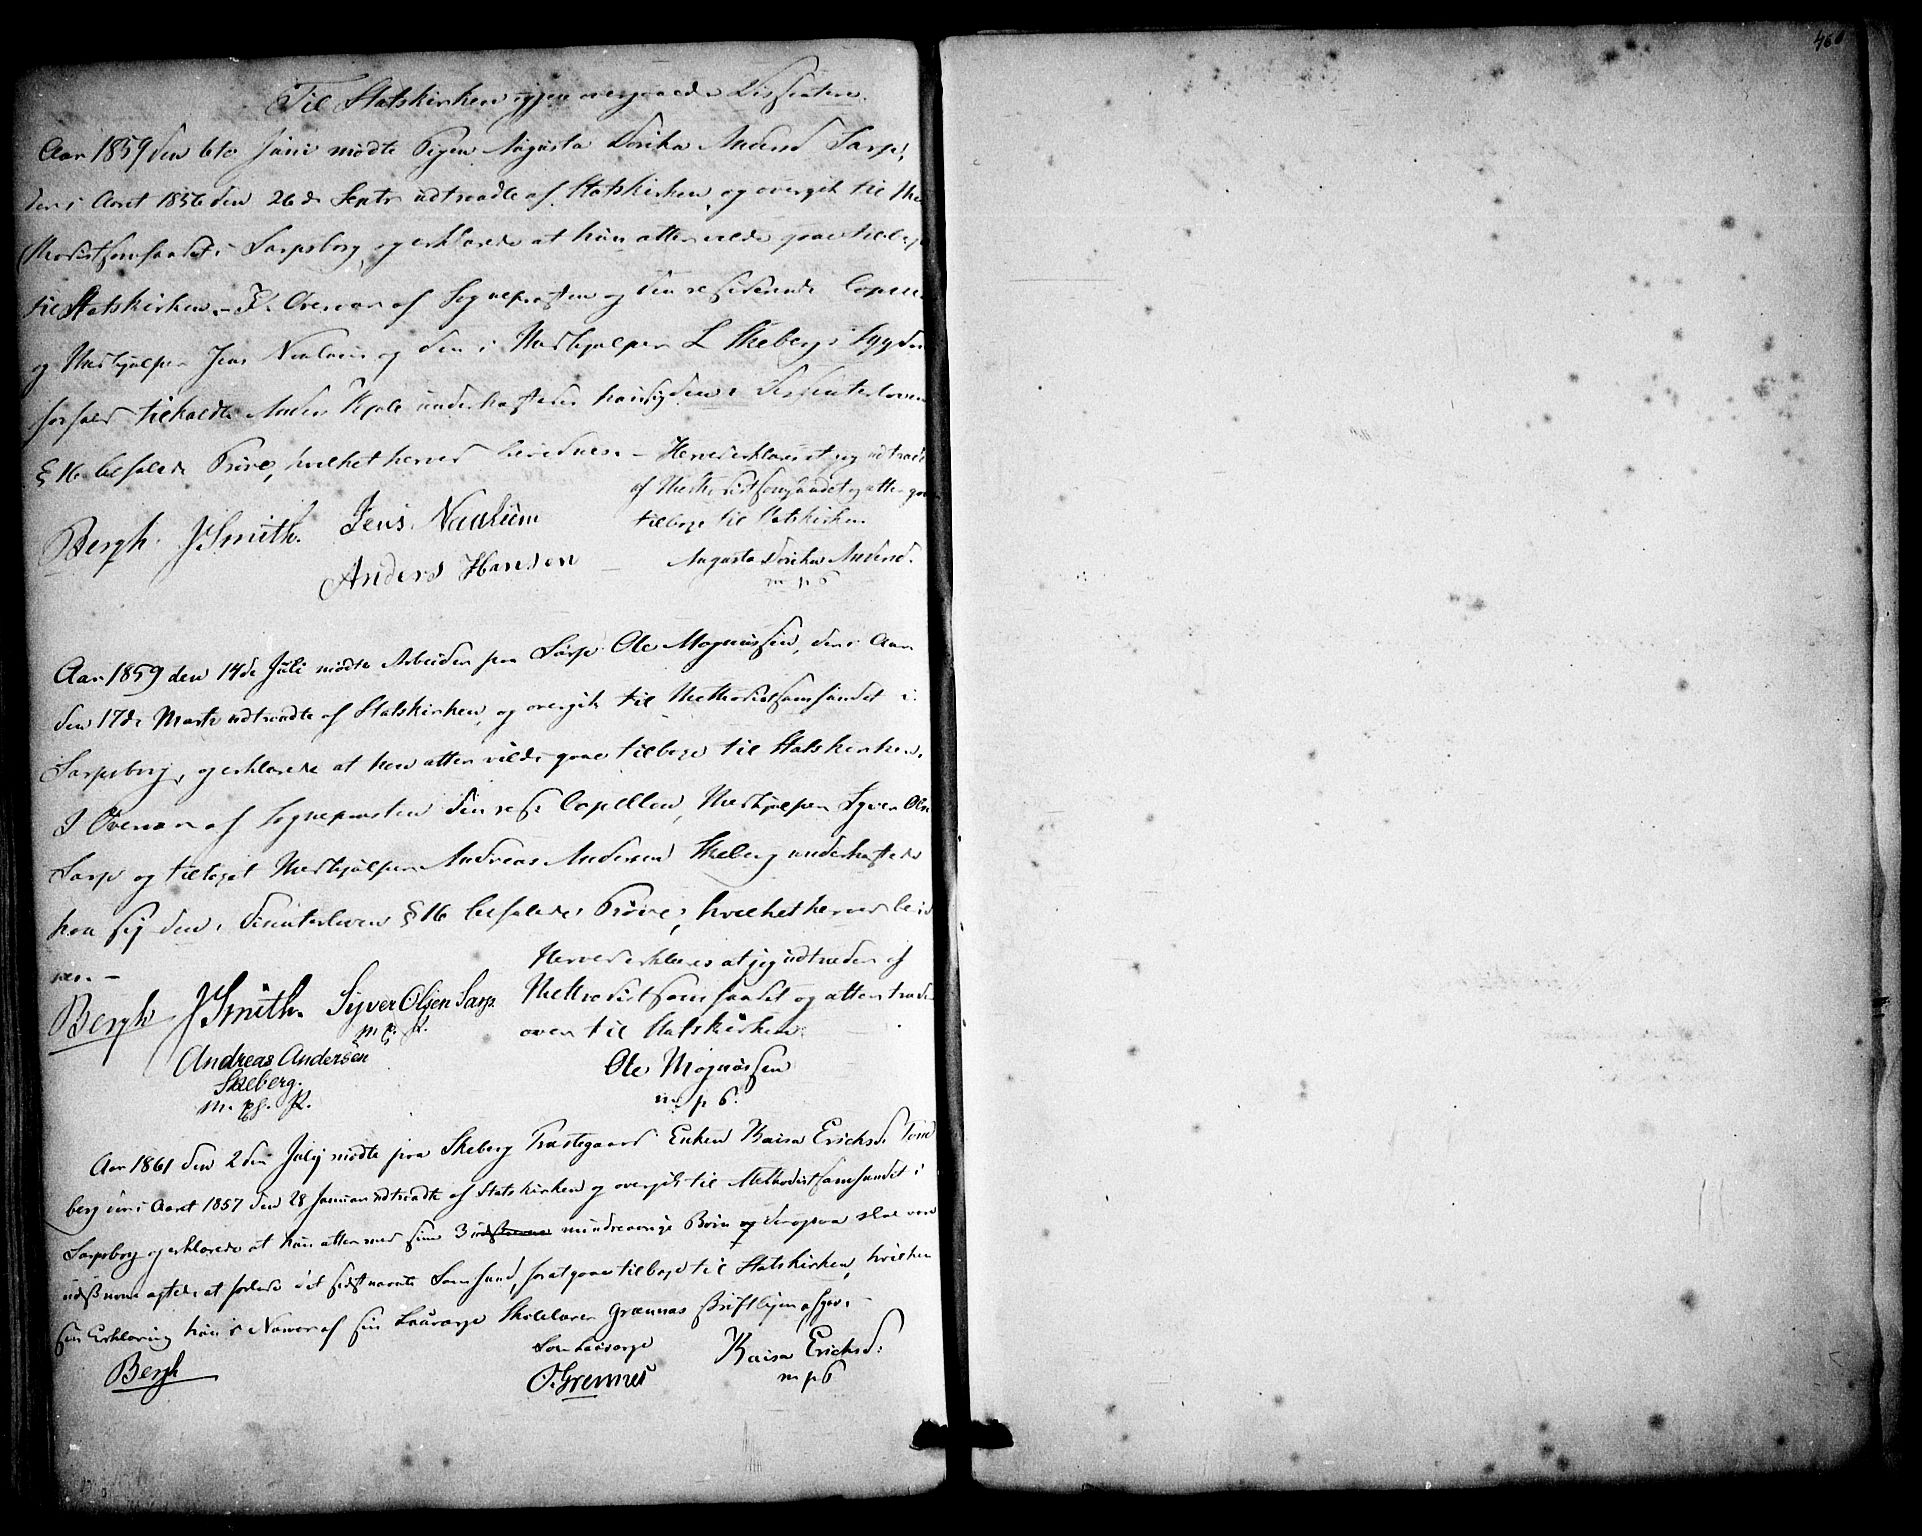 460
Til Statskirken igjen overgaaede Dissentere.
Aar 1859 den 6te Juni mødte Pigen Augusta Dorthea Andersd Sarp,
der i Aaret 1856 den 26de Septr udtraadte af Statskirken, og overgik til Me
thodistsamfundet i Sarpsborg, og erklærede at hun atter vilde gaae tilbage
til Statskirken. – I Overvær af Sognepræsten og den residerende Capellan
og Medhjælper Jens Naulum og den i Medhjælper L Skebergs
forfald tilkaldte Anders underholdtes i Dissenterloven
§ 16 befalede Prøve, hvilket herved bevidnes. – Herved erklæres at jeg udtræder
af Methodistsamfundet og atter gaar
tilbage til Statskirken
Bergh. J Smith. Jens Naulum
Anders Hansen – Augusta Dorthea Andersd.
m p b
Aar 1859 den 14de Juli mødte Arbeider paa Sarp Ole Magnussen, der i Aar
den 17de Marts udtraadte af Statskirken, og overgik til Methodistsamfundet i
Sarpsborg, og erklærede at han atter vilde gaae tilbage til Statskirken.
I Overvær af Sognepræsten den res. Capellan, Medhjælper Syver Olsen
Sarp og tiltaget Medhjælper Andreas Andersen Skeberg underholdtes
den i Dissenterloven § 16 befalede Prøve, hvilket herved bevid
nes. –
Herved erklæres at jeg udtræder af
Methodistsamfundet og atter træder
over til Statskirken.
Bergh J Smith. Syver Olsen Sarp.
m. p. P.
Andreas Andersen
Skeberg.
m. p. P.
Ole Magnussen
m p b.
Aar 1861 den 2den July mødte fra Skeberg Præstegaard Enken Kaisa Ericksd.
berg der i Aaret 1857 den 28 Januar udtraadte af Statskirken og overgik til Methodistsamfundet i
Sarpsborg og erklærede at hun atter med sine 3 mindreaarige Børn og
at forlade det sidstnævnte Samfund, for at gaae tilbage til Statskirken, hvilken
sin Erklæring hun i Nærvær af sin Laugværge Skolelærer Grennes skriftligen afgav. –
Bergh
Som Laugværge
O. Grennes
Kaisa Ericksd.
m p b